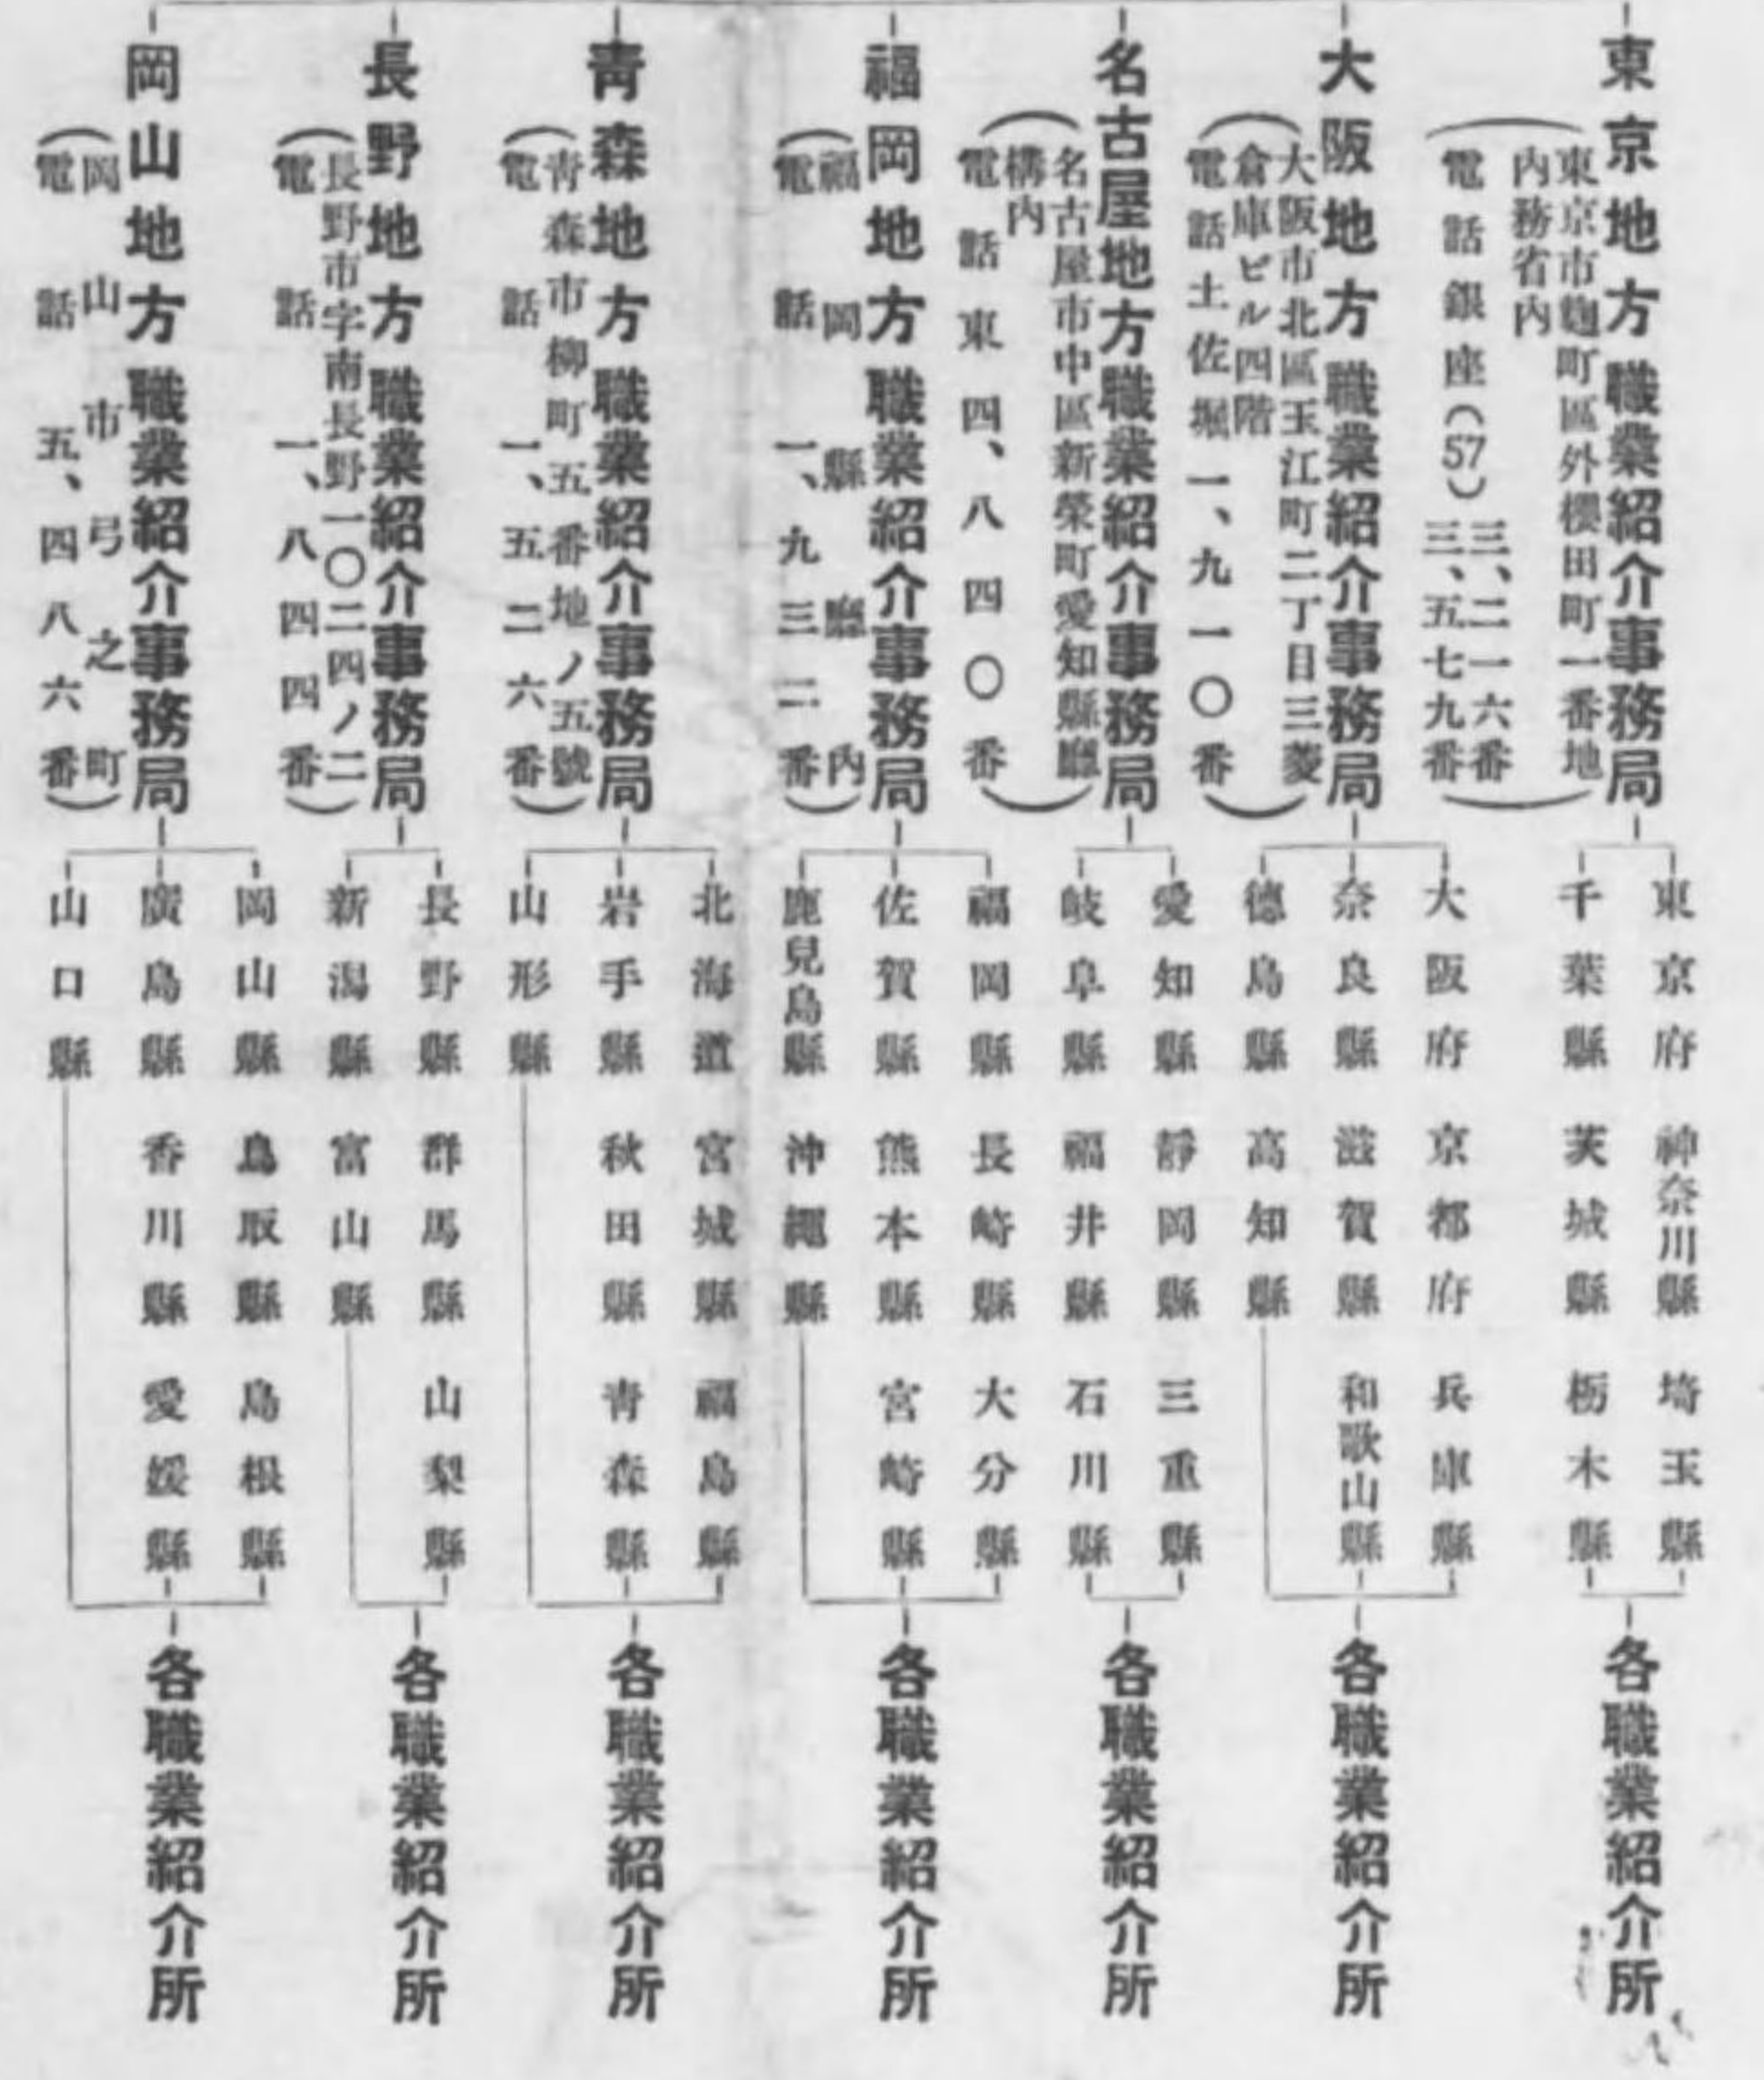 東京地方職業紹介事務局
東京市麴町區外櫻田町一番地
内務省内
電話銀座(57)三、二一六番
三、五七九番
東京府 神奈川縣 埼玉縣
千葉縣 茨城縣 栃木縣
各職業紹介所
大阪地方職業紹介事務局
大阪市北區玉江町二丁目三菱
倉庫ビル四階
電話土佐堀一、九一〇番
大阪府 京都府 兵庫縣
奈良縣 滋賀縣 和歌山縣
德島縣 高知縣
各職業紹介所
名古屋地方職業紹介事務局
名古屋市中區新榮町愛知縣廳
構内
電話東四、八四〇番
愛知縣 靜岡縣 三重縣
岐阜縣 福井縣 石川縣
各職業紹介所
福岡地方職業紹介事務局
福岡縣廳内
電話一、九三二番
福岡縣 長崎縣 大分縣
佐賀縣 熊本縣 宮崎縣
鹿兒島縣 沖繩縣
各職業紹介所
靑森地方職業紹介事務局
靑森市柳町五番地ノ五號
電話一、五二六番
北海道 宮城縣 福島縣
岩手縣 秋田縣 靑森縣
山形縣
各職業紹介所
長野地方職業紹介事務局
長野市字南長野一〇二四ノ二
電話一、八四四番
長野縣 群馬縣 山梨縣
新潟縣 富山縣
各職業紹介所
岡山地方職業紹介事務局
岡山市弓之町
電話五、四八六番
岡山縣 鳥取縣 島根縣
廣島縣 香川縣 愛媛縣
山口縣
各職業紹介所